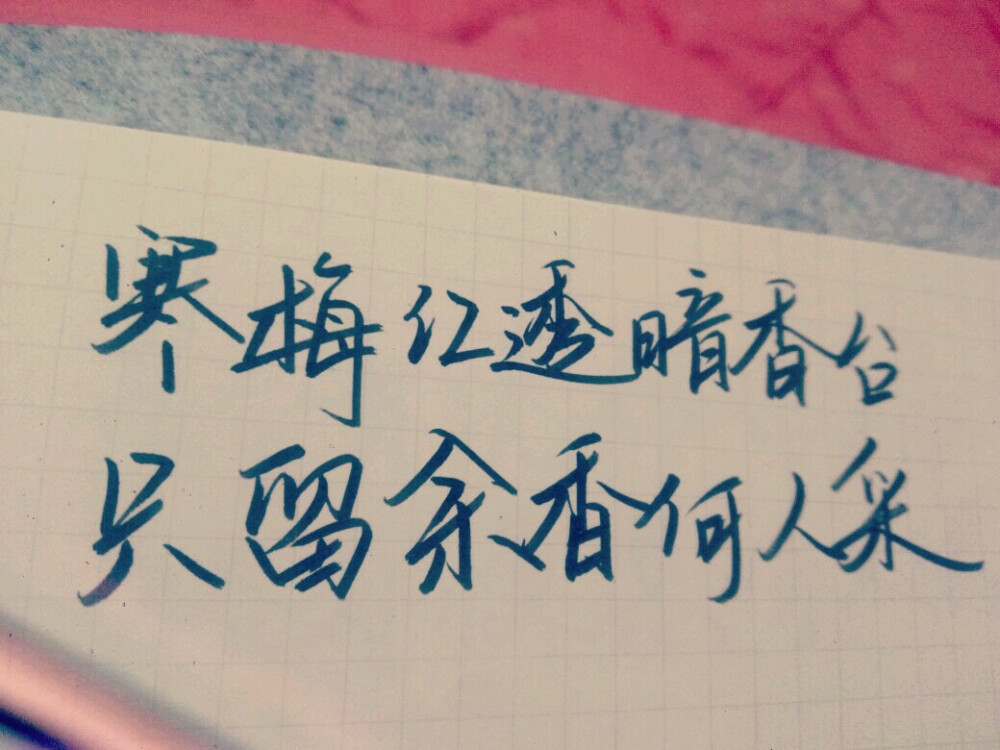 寒梅红透暗香台
只留余香何人采